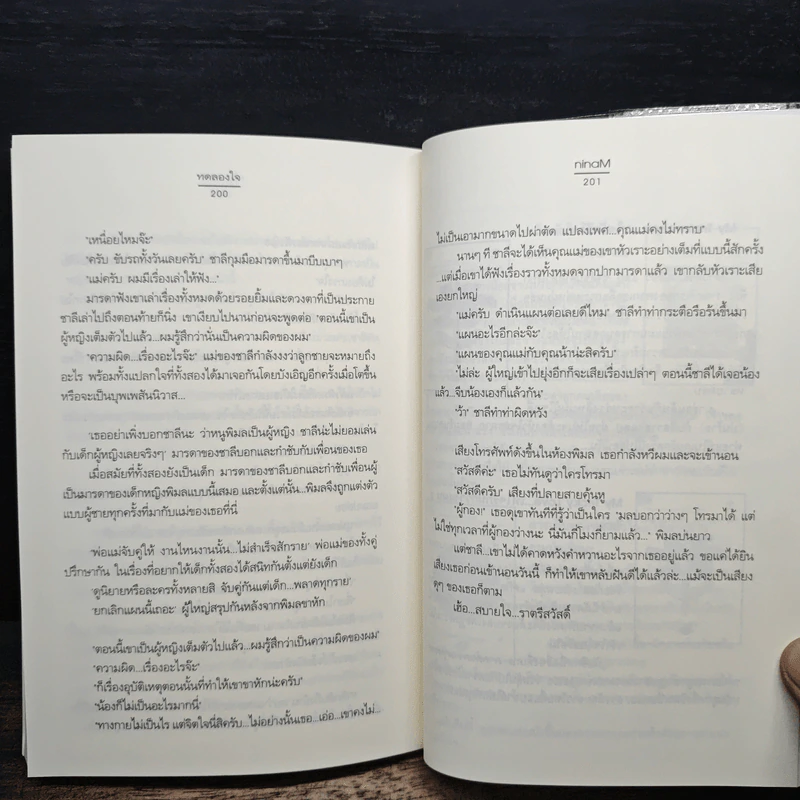 ทดลองใจ
200
"เหนื่อยไหมจ๊ะ"
"ครับ ขับรถทั้งวันเลยครับ" ชาลีกุมมือมารดาขึ้นมาบีบเบาๆ
"แม่ครับ ผมมีเรื่องเล่าให้ฟัง..."
มารดาฟังเขาเล่าเรื่องทั้งหมดด้วยรอยยิ้มและดวงตาที่เป็นประกาย
ชาลีเล่าไปถึงตอนท้ายก็นิ่ง เขาเงียบไปนานก่อนจะพูดต่อ "ตอนนี้เขาเป็น
ผู้หญิงเต็มตัวไปแล้ว...ผมรู้สึกว่านั่นเป็นความผิดของผม"
"ความผิด...เรื่องอะไรจ๊ะ" แม่ของชาลีกำลังงงว่าลูกชายจะหมายถึง
อะไร พร้อมทั้งแปลกใจที่ทั้งสองได้มาเจอกันโดยบังเอิญอีกครั้งเมื่อโตขึ้น
หรือจะเป็นบุพเพสันนิวาส...
'เธออย่าเพิ่งบอกชาลีนะ ว่าหนูพิมลเป็นผู้หญิง ชาลีน่ะไม่ยอมเล่น
กับเด็กผู้หญิงเลยจริงๆ' มารดาของชาลีบอกและกำชับกับเพื่อนของเธอ
เมื่อสมัยที่ทั้งสองยังเป็นเด็ก มารดาของชาลีบอกและกำชับเพื่อนผู้
เป็นมารดาของเด็กหญิงพิมลแบบนี้เสมอ และตั้งแต่นั้น...พิมลจึงถูกแต่งตัว
แบบผู้ชายทุกครั้งที่มากับแม่ของเธอที่นี่
'พ่อแม่จับคู่ให้ งานไหนงานนั้น...ไม่สำเร็จสักราย' พ่อแม่ของทั้งคู่
ปรึกษากัน ในเรื่องที่อยากให้เด็กทั้งสองได้สนิทกันตั้งแต่ยังเด็ก
'ดูนิยายหรือละครทั้งหลายสิ จับคู่กันแต่เด็ก...พลาดทุกราย'
'ยกเลิกแผนนี้เถอะ' ผู้ใหญ่สรุปกันหลังจากพิมลขาหัก
"ตอนนี้เขาเป็นผู้หญิงเต็มตัวไปแล้ว...ผมรู้สึกว่าเป็นความผิดของผม"
"ความผิด...เรื่องอะไรจ๊ะ"
"ก็เรื่องอุบัติเหตุตอนนั้นที่ทำให้เขาขาหักน่ะครับ"
"น้องก็ไม่เป็นอะไรมากนี่"
"ทางกายไม่เป็นไร แต่จิตใจนี่สิครับ...ไม่อย่างนั้นเธอ...เอ่อ...เขาคงไม่...
ninaM
201
ไม่เป็นเอามากขนาดไปผ่าตัด แปลงเพศ...คุณแม่คงไม่ทราบ"
นานๆ ที ชาลีจะได้เห็นคุณแม่ของเขาหัวเราะอย่างเต็มที่แบบนี้สักครั้ง
...แต่เมื่อเขาได้ฟังเรื่องราวทั้งหมดจากปากมารดาแล้ว เขากลับหัวเราะเสีย
เองยกใหญ่
"แม่ครับ ดำเนินแผนต่อเลยดีไหม" ชาลีทำท่ากระตือรือร้นขึ้นมา
"แผนอะไรอีกล่ะจ๊ะ"
"แผนของคุณแม่กับคุณน้าน่ะสิครับ"
"ไม่ล่ะ ผู้ใหญ่เข้าไปยุ่งอีกก็จะเสียเรื่องเปล่าๆ ตอนนี้ชาลีได้เจอน้อง
แล้ว...จีบน้องเองก็แล้วกัน"
"ว้า" ชาลีทำท่าผิดหวัง
เสียงโทรศัพท์ดังขึ้นในห้องพิมล เธอกำลังหวีผมและจะเข้านอน
"สวัสดีค่ะ" เธอไม่ทันดูว่าใครโทรมา
"สวัสดีครับ" เสียงที่ปลายสายคุ้นหู
"ผู้กอง!" เธอดุเขาทันทีที่รู้ว่าเป็นใคร "มลบอกว่าว่างๆ โทรมาได้ แต่
ไม่ใช่ทุกเวลาที่ผู้กองว่างนะ นี่มันกี่โมงกี่ยามแล้ว..." พิมลบ่นยาว
แต่ชาลี...เขาไม่ได้คาดหวังคำหวานอะไรจากเธออยู่แล้ว ขอแค่ได้ยิน
เสียงเธอก่อนเข้านอนวันนี้ ก็ทำให้เขาหลับฝันดีได้แล้วล่ะ...แม้จะเป็นเสียง
ดุๆ ของเธอก็ตาม
เฮ้อ...สบายใจ...ราตรีสวัสดิ์